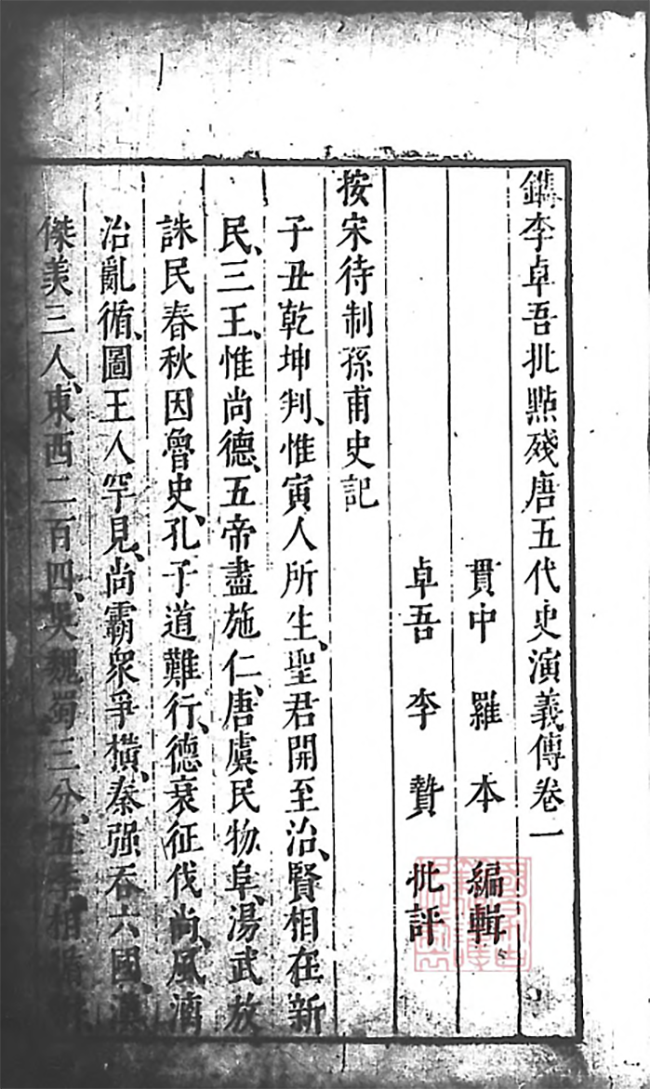 鐫李卓吾批點殘唐五代史演義傳卷一
貫中 羅 本 編輯
卓吾 李 贄 批評
按宋待制孫甫史記
子丑乾坤判、惟寅人所生、聖君開至治、賢相在新
民、三王、惟尚德、五帝盡施仁、唐虞民物阜、湯武放
誅民春秋因魯史、孔子道難行、德衰征伐尚、風漓
治亂循、圖王人罕見、尚霸衆爭橫、秦强吞六國、漢
傑美三人、東西二百四、吳魏蜀三分、五季相